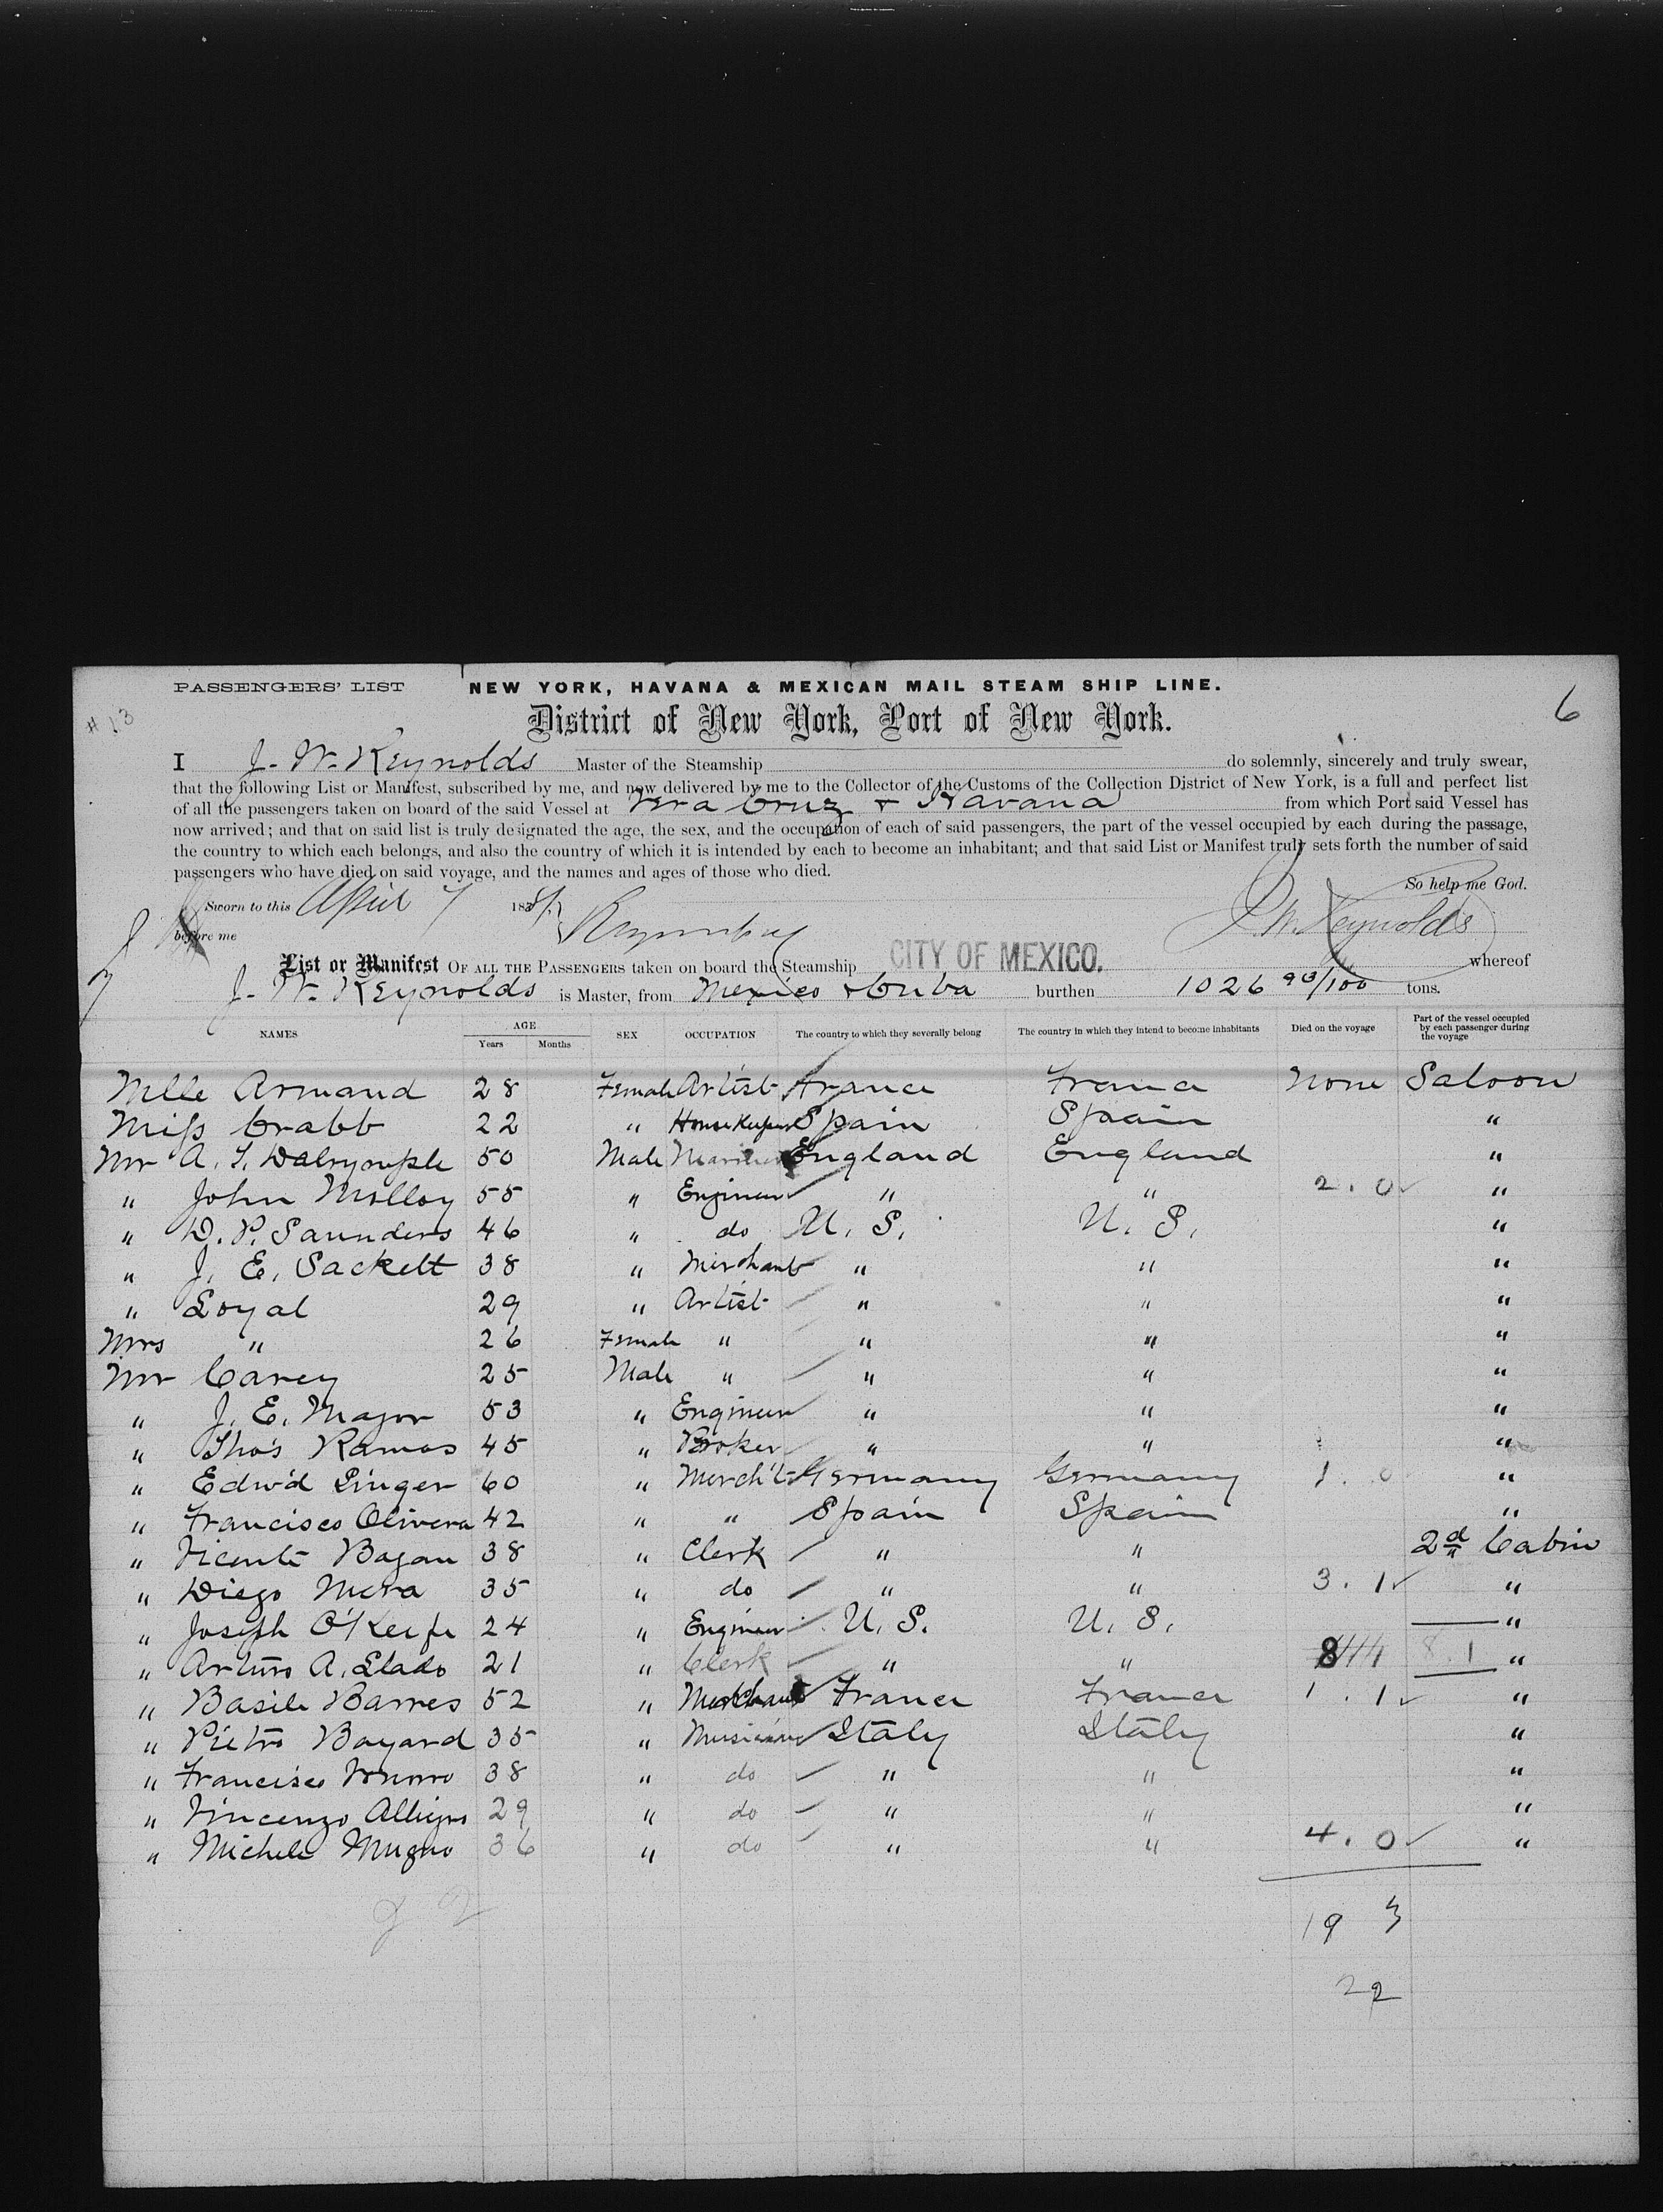 PASSENGERS' LIST NEW YORK, HAVANA & MEXICAN MAIL STEAM SHIP LINE. 6
# 13 District of New York, Port of New York.
I J. W. Reynolds Master of the Steamship do solemnly, sincerely and truly swear,
that the following List or Manifest, subscribed by me, and now delivered by me to the Collector of the Customs of the Collection District of New York, is a full and perfect list
of all the passengers taken on board of the said Vessel at Vera Cruz & Havana from which Port said Vessel has
now arrived; and that on said list is truly designated the age, the sex, and the occupation of each of said passengers, the part of the vessel occupied by each during the passage,
the country to which each belongs, and also the country of which it is intended by each to become an inhabitant; and that said List or Manifest truly sets forth the number of said
passengers who have died on said voyage, and the names and ages of those who died.
So help me God.
Sworn to this April 7 1881.
before me J. W. Reynolds
List or Manifest OF ALL THE PASSENGERS taken on board the Steamship CITY OF MEXICO. whereof
J. W. Reynolds is Master, from Mexico & Cuba burthen 1026 93/100 tons.
NAMES AGE Years Months SEX OCCUPATION The country to which they severally belong The country in which they intend to become inhabitants Died on the voyage Part of the vessel occupied by each passenger during the voyage
Mlle Armand 28 Female Artist France France None Saloon
Miss Crabb 22 " House Keeper Spain Spain "
Mr A. T. Dalrymple 50 Male Mariner England England "
" John Molloy 55 " Engineer " " 2. 0 "
" D. P. Saunders 46 " do U. S. U. S. "
" J. E. Sackett 38 " Merchant " " "
" Loyal 29 " Artist " " "
Mrs " 26 Female " " " "
Mr Carey 25 Male " " " "
" J. E. Major 53 " Engineer " " "
" Thos Ramos 45 " Broker " " "
" Edw'd Linger 60 " Merch't Germany Germany 1. 0 "
" Francisco Olivera 42 " " Spain Spain "
" Vicente Bagan 38 " Clerk " " 2d Cabin
" Diego Mera 35 " do " " 3. 1 "
" Joseph O'Keefe 24 " Engineer U. S. U. S. "
" Arturo A. Llado 21 " Clerk " " 8 8. 1 "
" Basile Barres 52 " Merchant France France 1. 1 "
" Pietro Bayard 35 " Musician Italy Italy "
" Francisco 38 " do " " "
" Vincenzo 29 " do " " "
" Michele Mugno 36 " do " " 4. 0 "
19 3
22